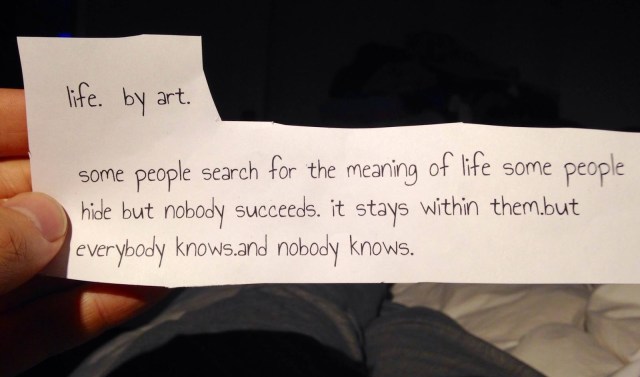 life. by art.
some people search for the meaning of life some people
hide but nobody succeeds. it stays within them.but
everybody knows.and nobody knows.